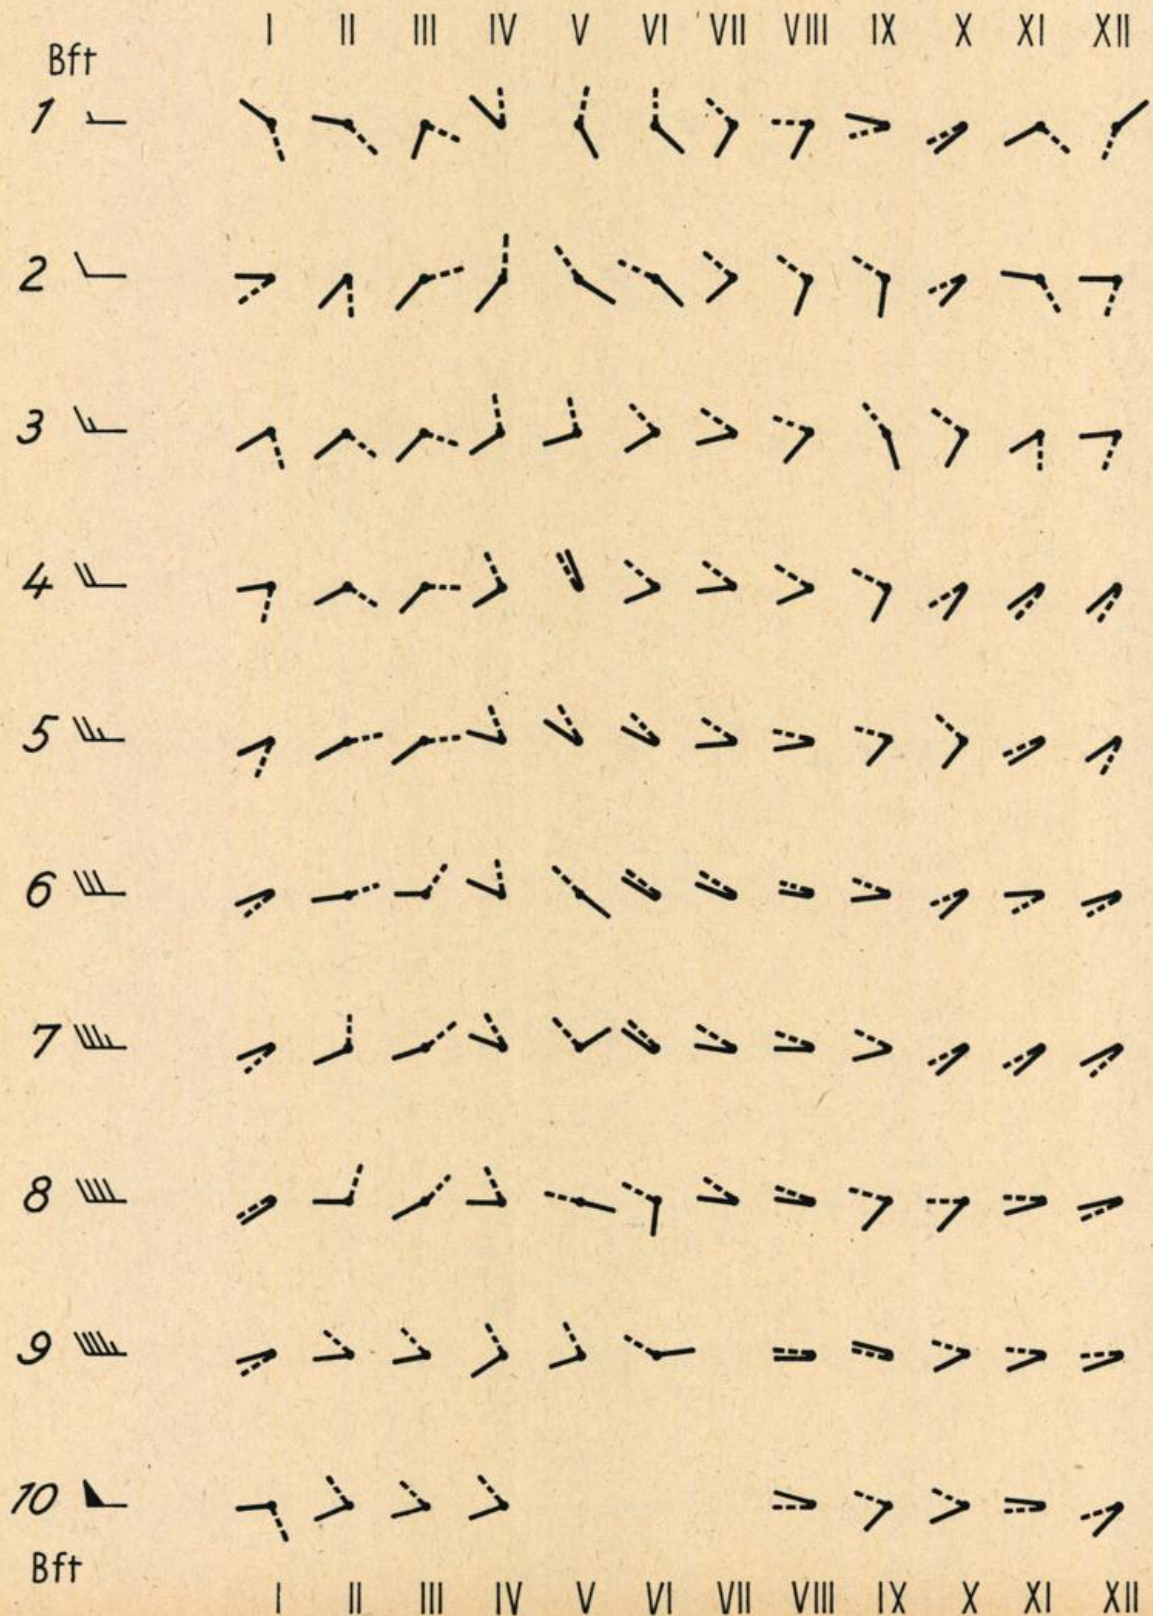 I II III IV V VI VII VIII IX X XI XII
Bft
1
2
3
4
5
6
7
8
9
10
Bft
I II III IV V VI VII VIII IX X XI XII